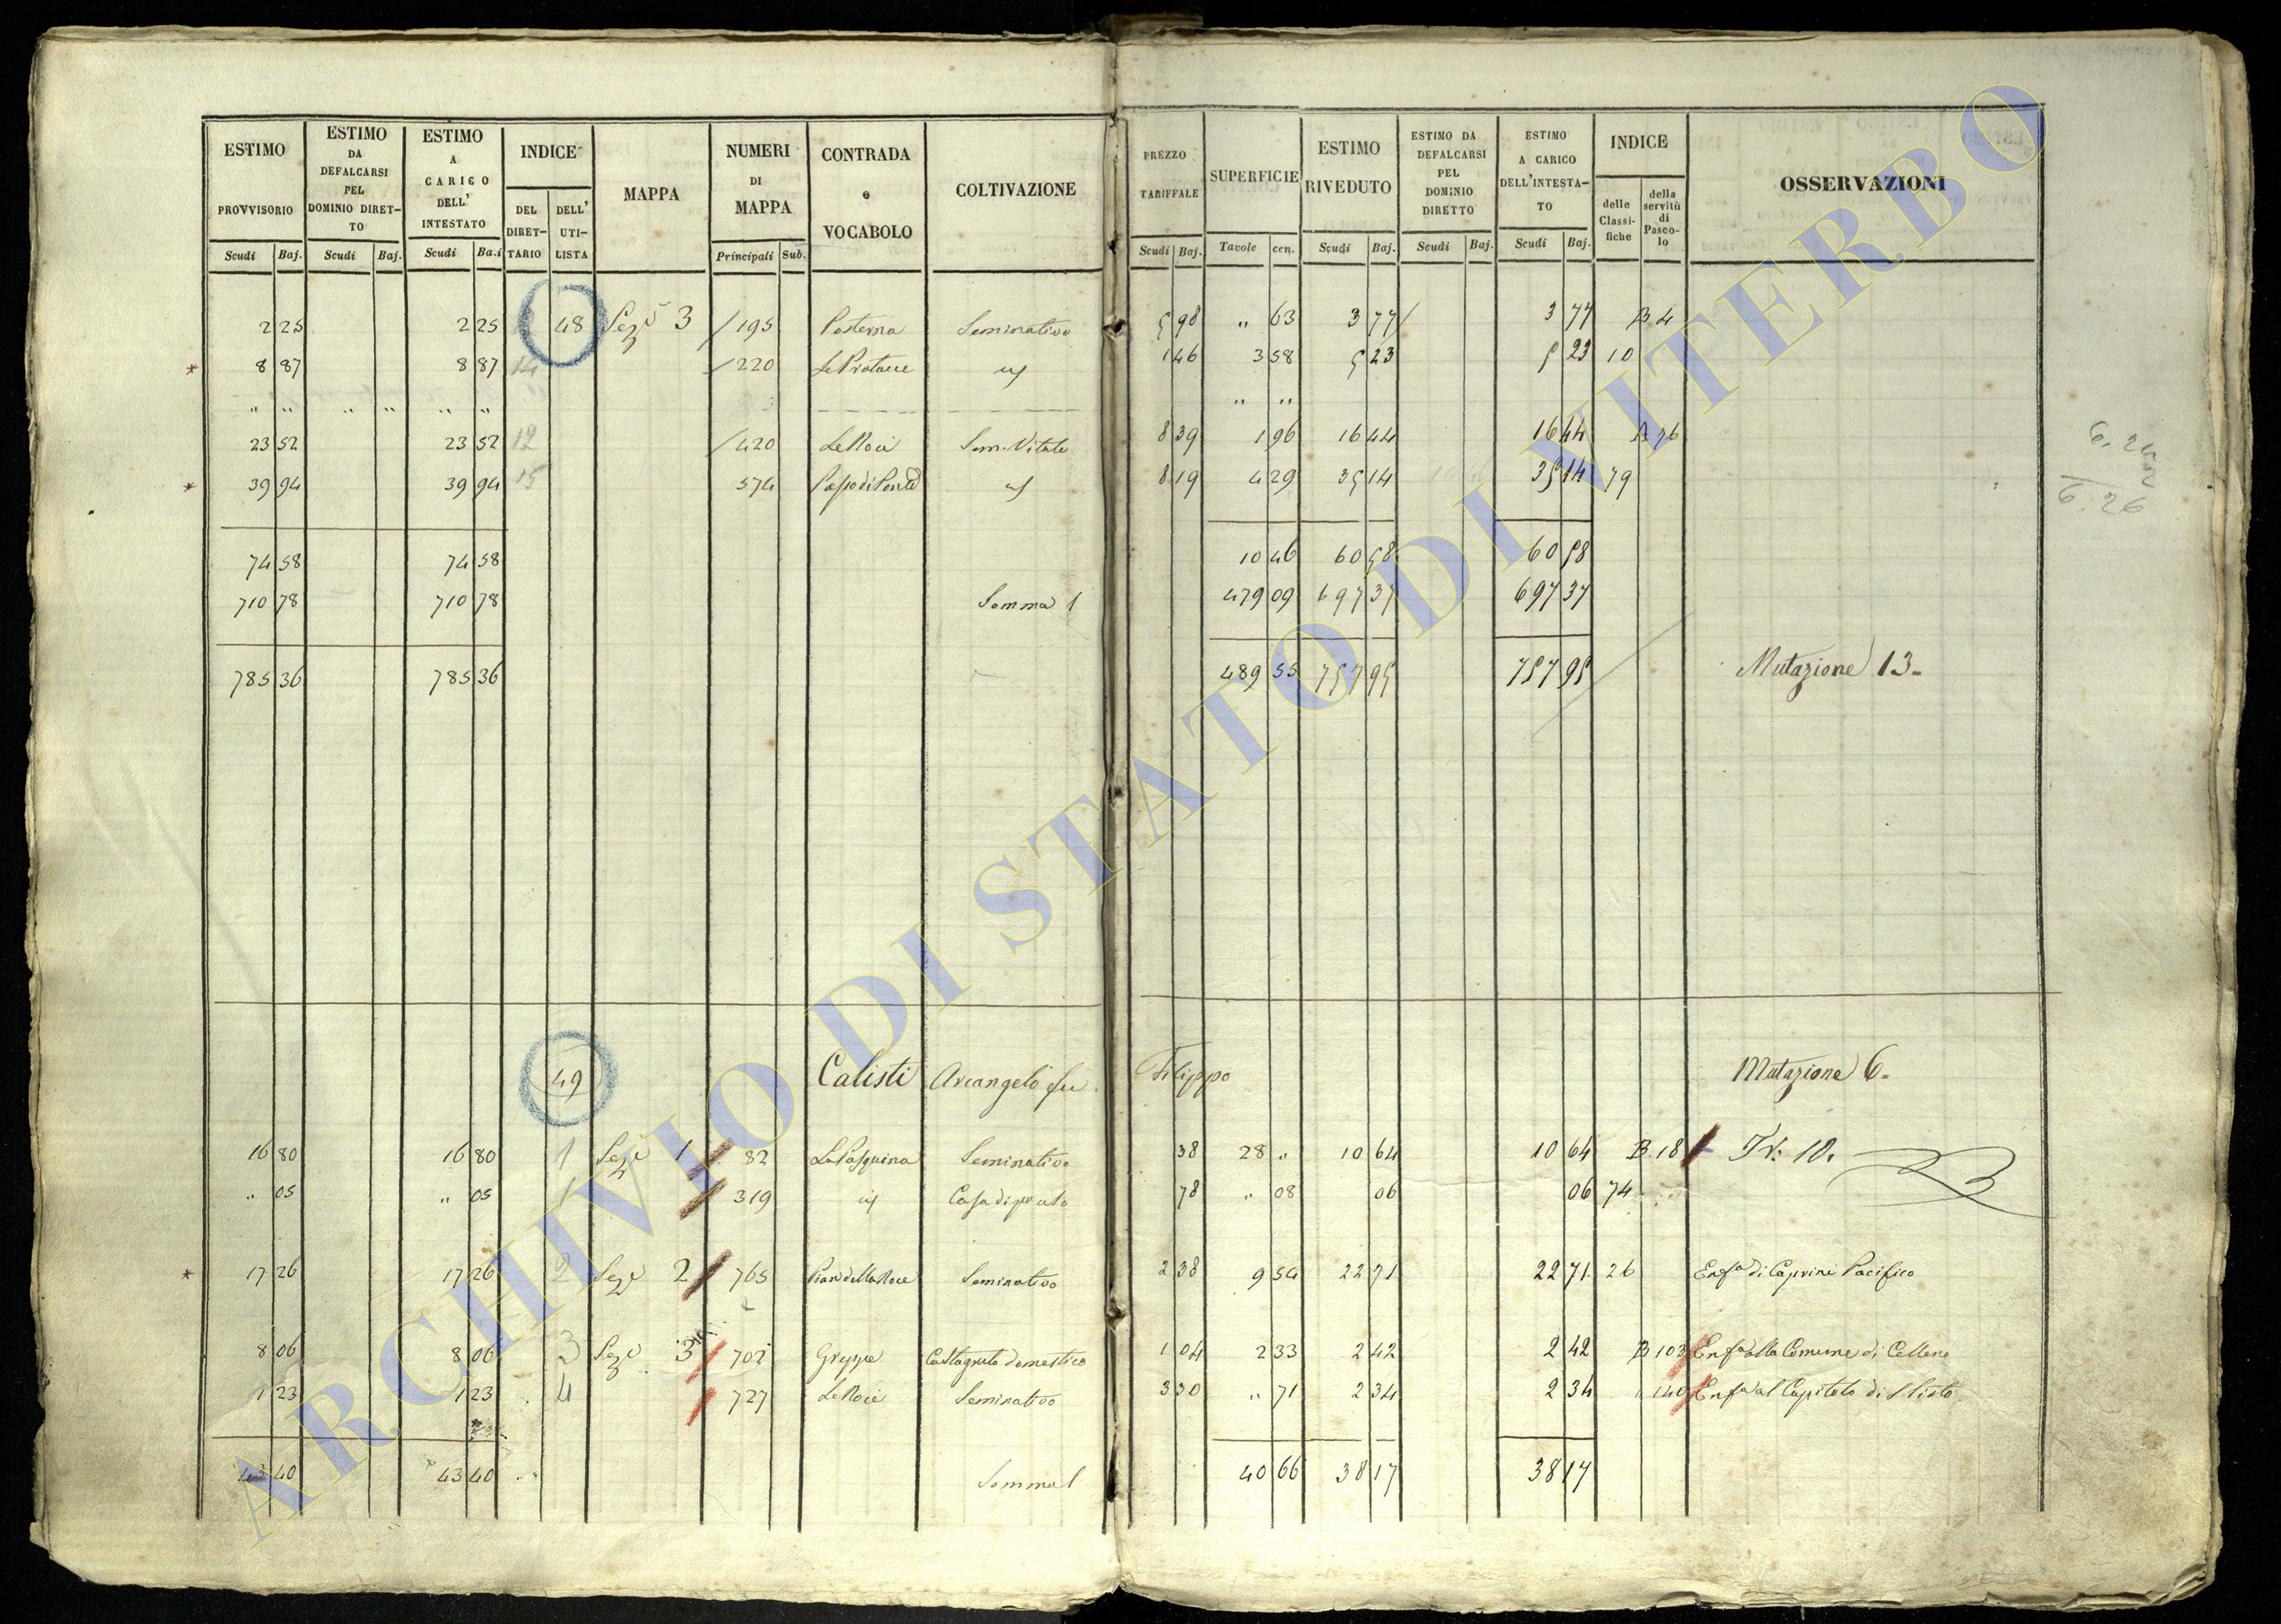 ESTIMO PROVVISORIO
ESTIMO DA DEFALCARSI PEL DOMINIO DIRET-TO
ESTIMO A CARICO DELL' INTESTATO
INDICE
DEL DIRET-TARIO
DELL' UTI-LISTA
MAPPA
NUMERI DI MAPPA
CONTRADA e VOCABOLO
COLTIVAZIONE
PREZZO TARIFFALE
SUPERFICIE
ESTIMO RIVEDUTO
ESTIMO DA DEFALCARSI PEL DOMINIO DIRETTO
ESTIMO A CARICO DELL'INTESTA-TO
INDICE
delle Classi-fiche
della servitù di Pasco-lo
OSSERVAZIONI
Scudi Baj. Scudi Baj. Scudi Ba.i Principali Sub. Scudi Baj. Tavole cen. Scudi Baj. Scudi Baj. Scudi Baj.
2 25 2 25 48 Sez.e 3 195 Posterna Seminativo 5 98 " 63 3 77 3 77 B 4
8 87 8 87 14 220 1 46 3 58 5 23 5 23 10
" " " " " " " "
23 52 23 52 12 420 Le Noci Sem. Vitato 8 39 1 96 16 44 16 44
39 94 39 94 15 574 8 19 4 29 35 14 35 14 79
6.26
74 58 74 58 10 46 60 58 60 58
710 78 710 78 Somma 479 09 697 37 697 37
785 36 785 36 489 55 757 95 757 95 Mutazione 13.
49 Calisti Arcangelo fu Filippo Mutazione 6.
16 80 16 80 1 Sez.e 1 82 La Pasquina Seminativo 38 28 " 10 64 10 64 B. 18 Tr. 10.
" 05 " 05 1 319 78 " 08 06 06 74
17 26 17 26 2 Sez.e 2 765 Seminativo 2 38 9 54 22 71 22 71 26 Enf.a di Caprini Pacifico
8 06 8 06 3 Sez.e 3 Greppe Castagneto domestico 1 04 2 33 2 42 2 42 B 103 Enf.a alla Comune di Celleno
1 23 1 23 4 727 Le Noci Seminativo 3 30 " 71 2 34 2 34 140 Enf.a al Capitolo di
43 40 43 40 Somma 40 66 38 17 38 17
ARCHIVIO DI STATO DI VITERBO